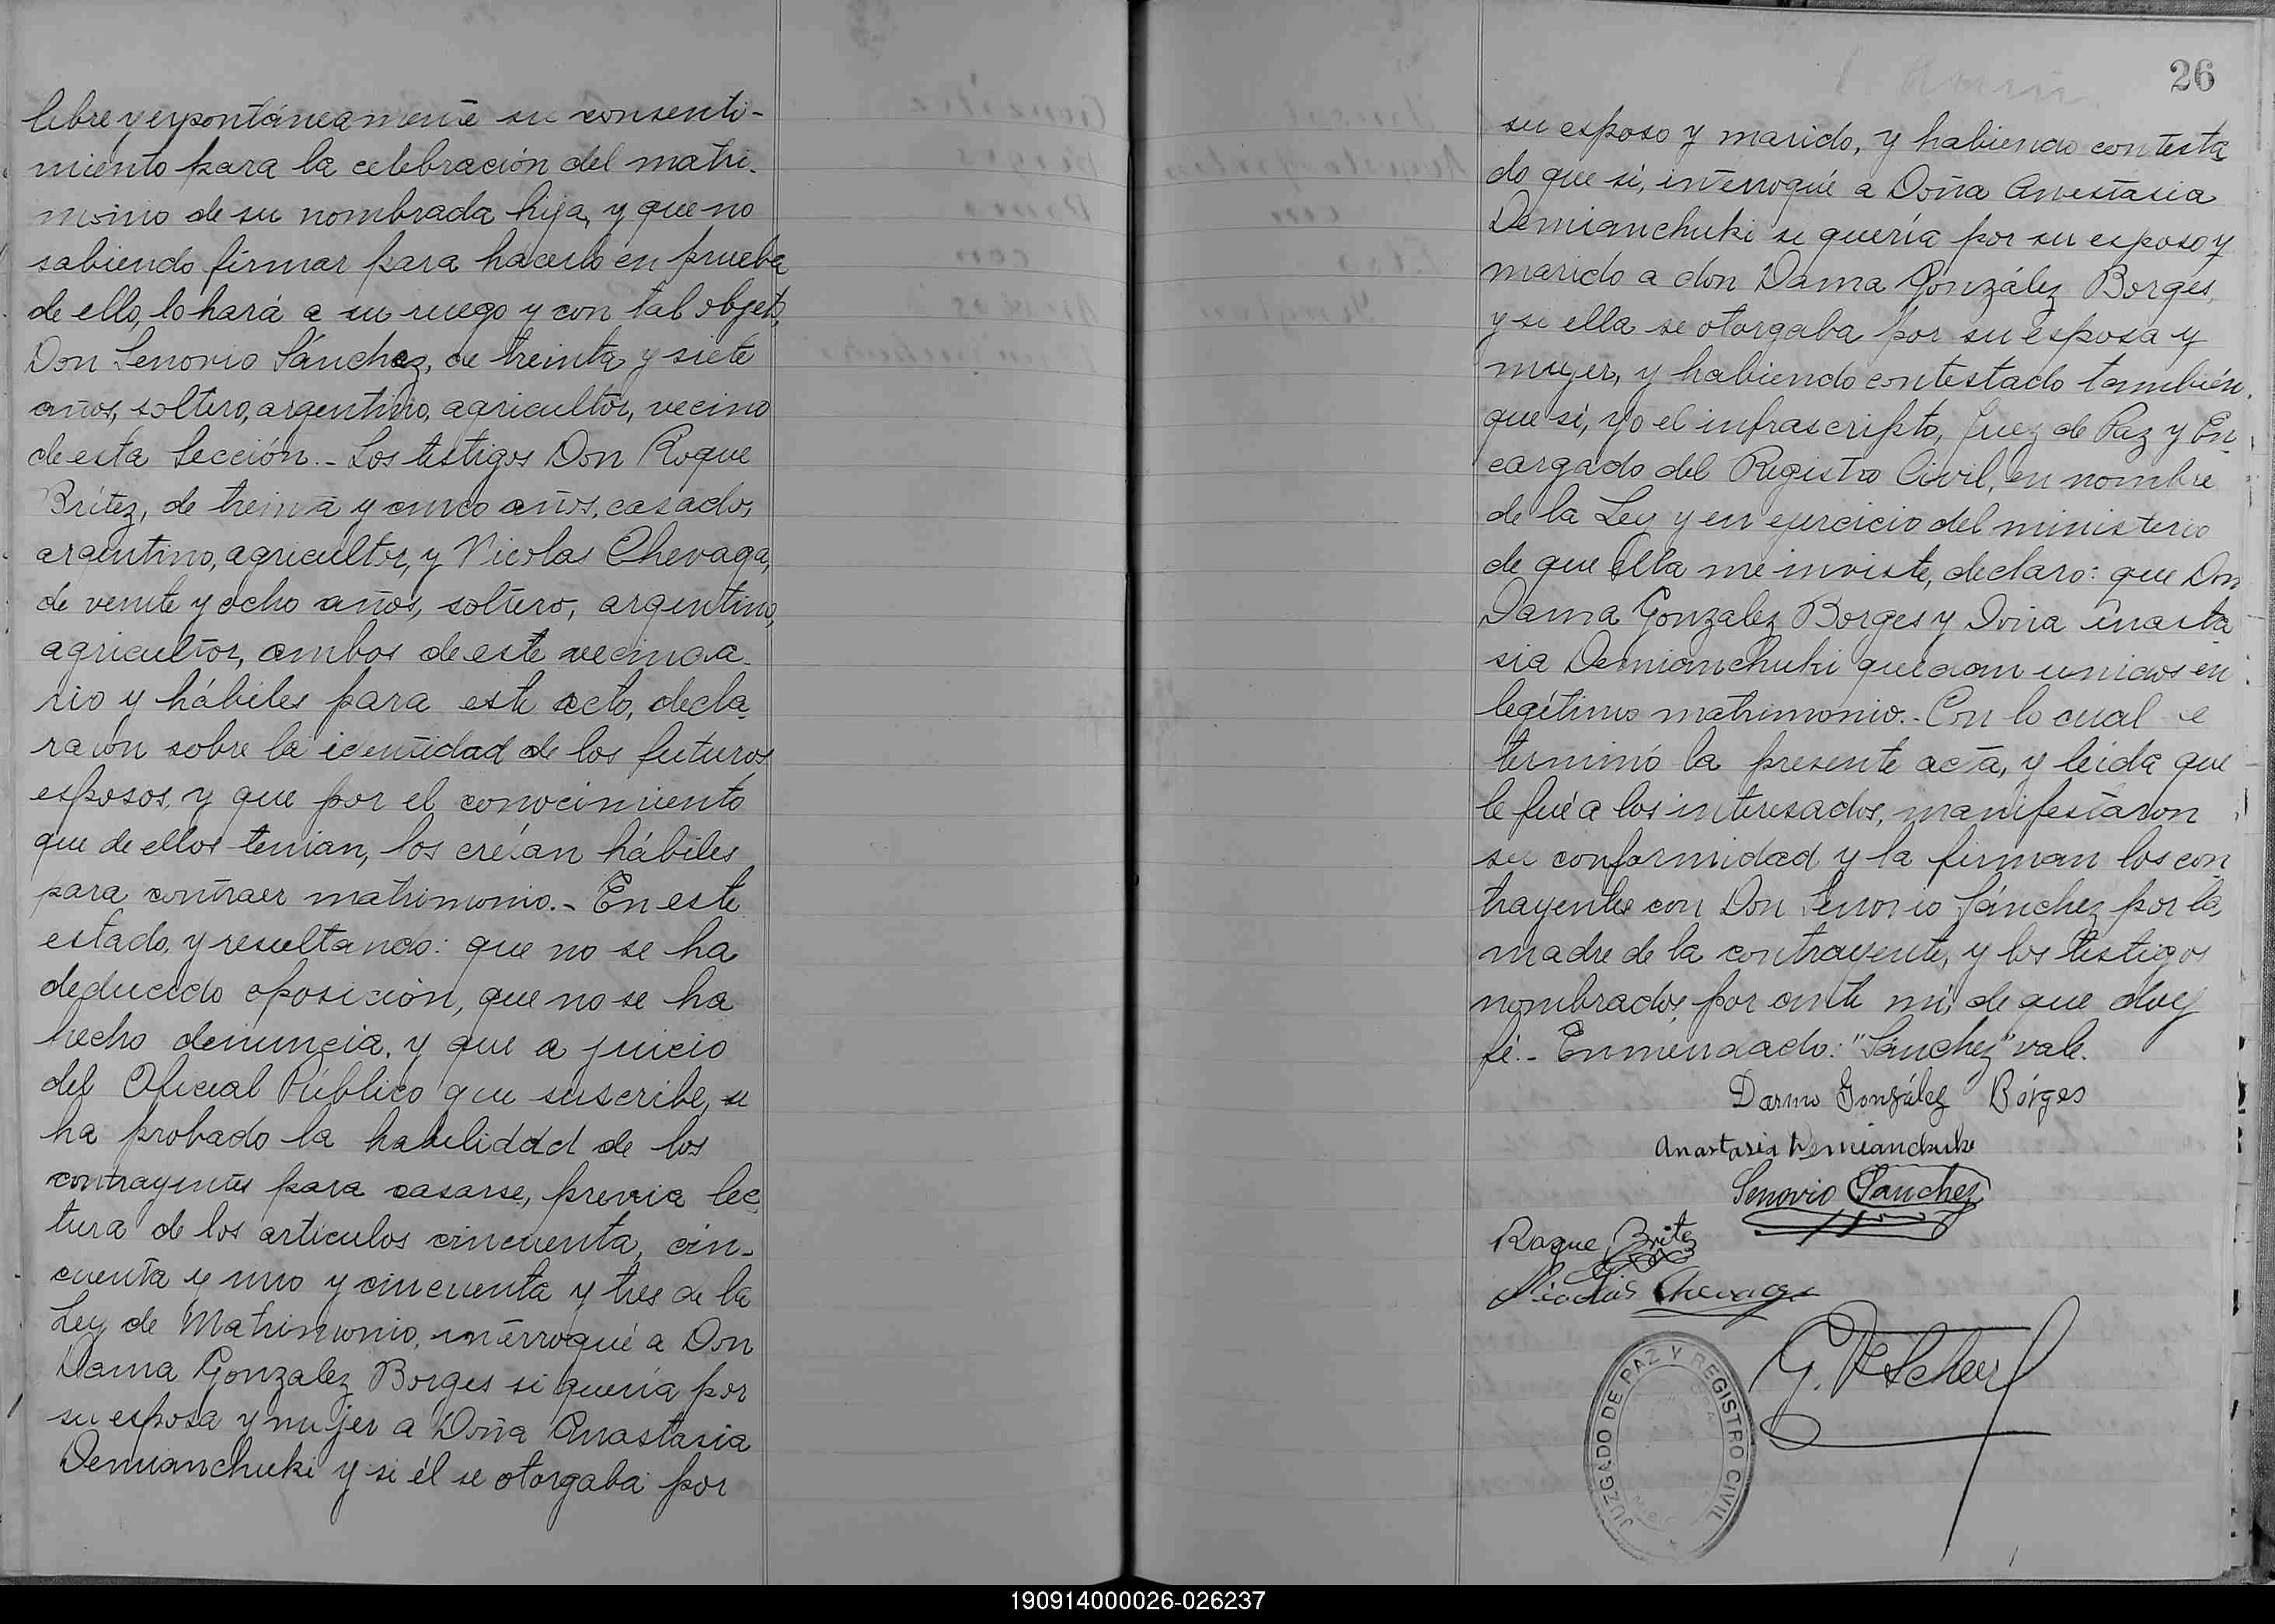 libre y expontáneamente su consenti-
miento para la celebración del matri-
monio de su nombrada hija, y que no
sabiendo firmar para hacerlo en prueba
de ello, lo hará a su ruego y con tal objeto,
Don Senovio Sánchez, de treinta y siete
años, soltero, argentino, agricultor, vecino
de esta Sección.- Los testigos Don Roque
Brítez, de treinta y cinco años, casado,
argentino, agricultor, y Nicolas Chevaga,
de veinte y ocho años, soltero, argentino,
agricultor, ambos de este vecinda-
rio y hábiles para este acto, decla-
raron sobre la identidad de los futuros
esposos, y que por el conocimiento
que de ellos tenian, los creían hábiles
para contraer matrimonio.- En este
estado, y resultando: que no se ha
deducido oposición, que no se ha
hecho denuncia, y que a juicio
del Oficial Público que suscribe, se
ha probado la habilidad de los
contrayentes para casarse, previa lec-
tura de los artículos cincuenta, cin-
cuenta y uno y cincuenta y tres de la
Ley de Matrimonio, interrogué a Don
Dama Gonzalez Borges si quería por
su esposa y mujer a Doña Anastasia
Demianchuki y si él se otorgaba por
26
su esposo y marido, y habiendo contesta
do que si, interrogué a Doña Anastasia
Demianchuki si quería por su esposo y
marido a don Dama González Borges,
y si ella se otorgaba por su esposa y
mujer, y habiendo contestado también
que si, yo el infrascripto, Juez de Paz y En-
cargado del Registro Civil, en nombre
de la Ley y en ejercicio del ministerio
de que Ella me inviste, declaro: que Don
Dama Gonzalez Borges y Doña Anasta
sia Demianchuki quedan unidos en
legítimo matrimonio.- Con lo cual se
terminó la presente acta, y leída que
le fué a los interesados, manifestaron
su conformidad y la firman los con
trayentes con Don Senovio Sánchez por la
madre de la contrayente, y los testigos
nombrados, por ante mi, de que doy
fé.- Enmendado: "Sánchez" vale.
Darmo González Bórges
Anastasia Demianchuke
Senovio Sanchez
Roque Britez
Nicolás Chevaga
JUZGADO DE PAZ Y REGISTRO CIVIL
190914000026-026237